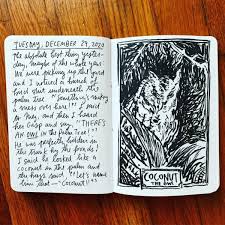 TUESDAY, DECEMBER 29, 2020
The absolute best thing yester-
day, maybe of the whole year.
We were picking up the yard
and I noticed a bunch of
bird shit underneath this
palm tree. "Something's making
a mess over here!" I said
to Meg, and then I heard
her gasp and say, "THERE'S
AN OWL in the palm tree!"
He was perfectly hidden in
the trunk by the fronds!
I said he looked like a
coconut in the palm and
the boys said "Let's name
him that — "Coconut!"
COCONUT
THE OWL